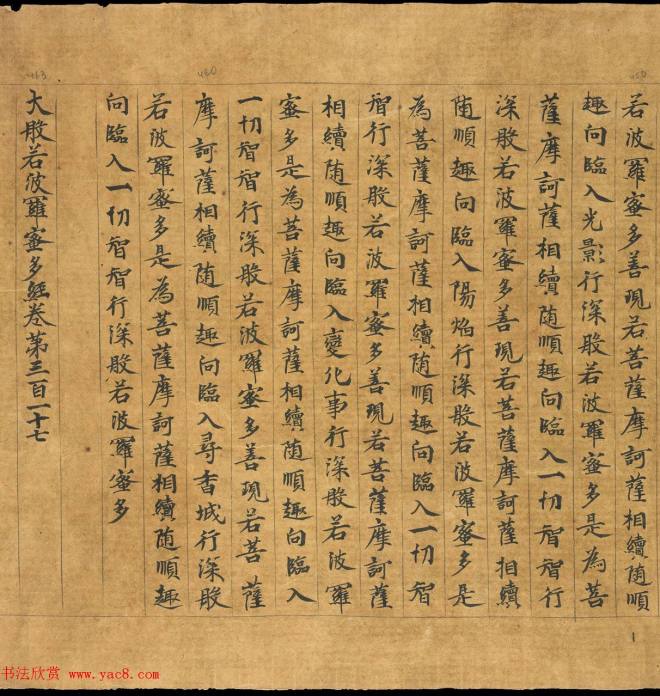 若波羅蜜多善現若菩薩摩訶薩相續随順
趣向臨入光影行深般若波羅蜜多是為菩
薩摩訶薩相續随順趣向臨入一切智智行
深般若波羅蜜多善現若菩薩摩訶薩相續
随順趣向臨入陽焰行深般若波羅蜜多是
為菩薩摩訶薩相續随順趣向臨入一切智
智行深般若波羅蜜多善現若菩薩摩訶薩
相續随順趣向臨入變化事行深般若波羅
蜜多是為菩薩摩訶薩相續随順趣向臨入
一切智智行深般若波羅蜜多善現若菩薩
摩訶薩相續随順趣向臨入尋香城行深般
若波羅蜜多是為菩薩摩訶薩相續随順趣
向臨入一切智智行深般若波羅蜜多
大般若波羅蜜多經卷第三百一十七
463
460
450
1
书法欣赏 www.yac8.com